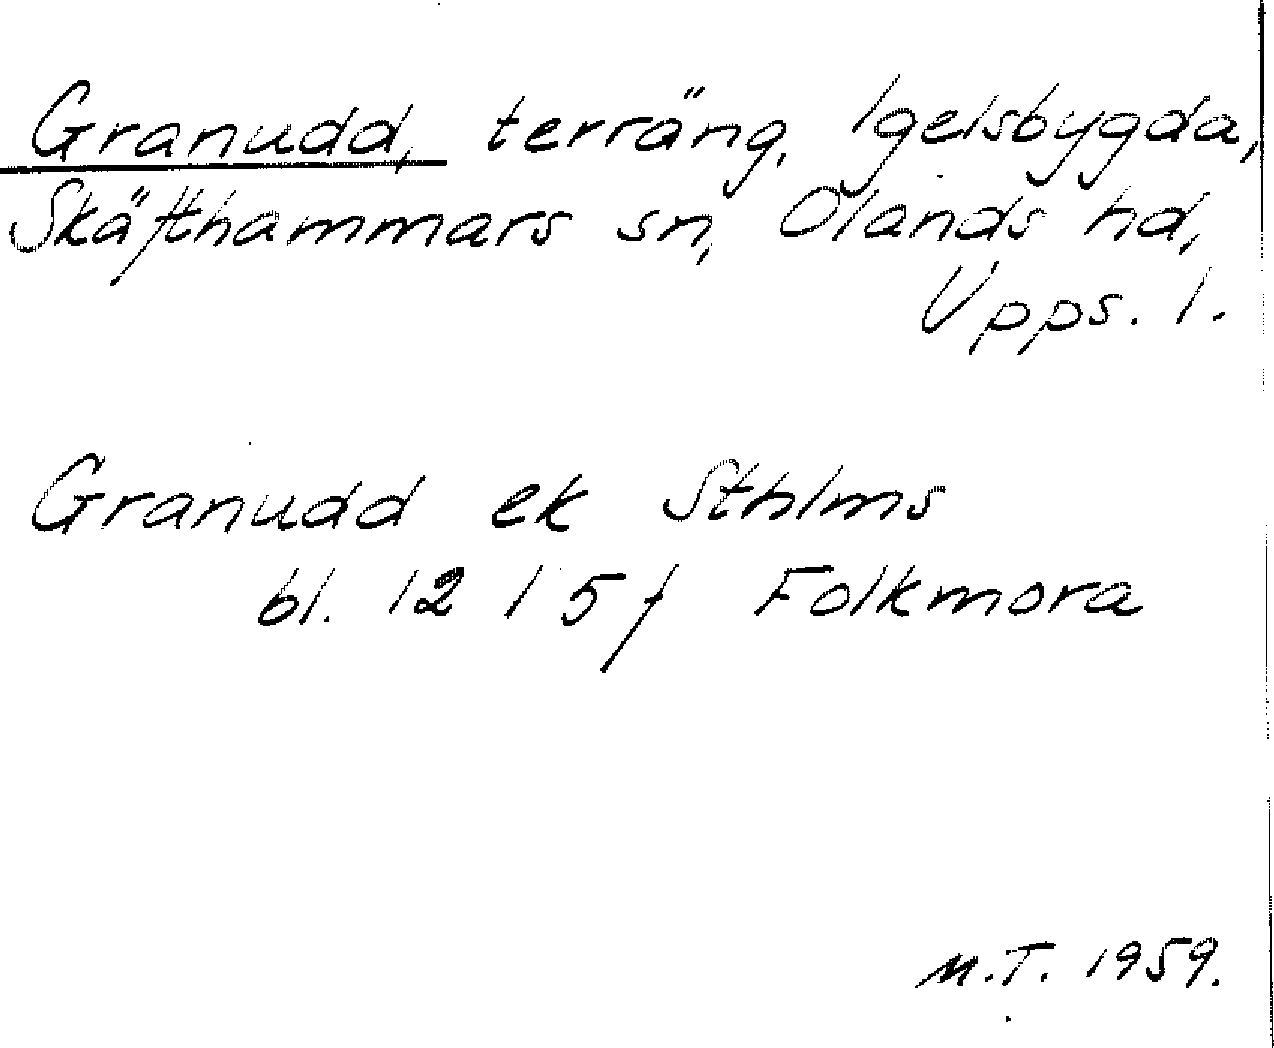 Granudd, terräng, Igelsbygda,
Skäfthammars sn, Olands hd,
Upps. l.
Granudd ek Sthlms
bl. 12 I 5 f Folkmora
M.T. 1959.